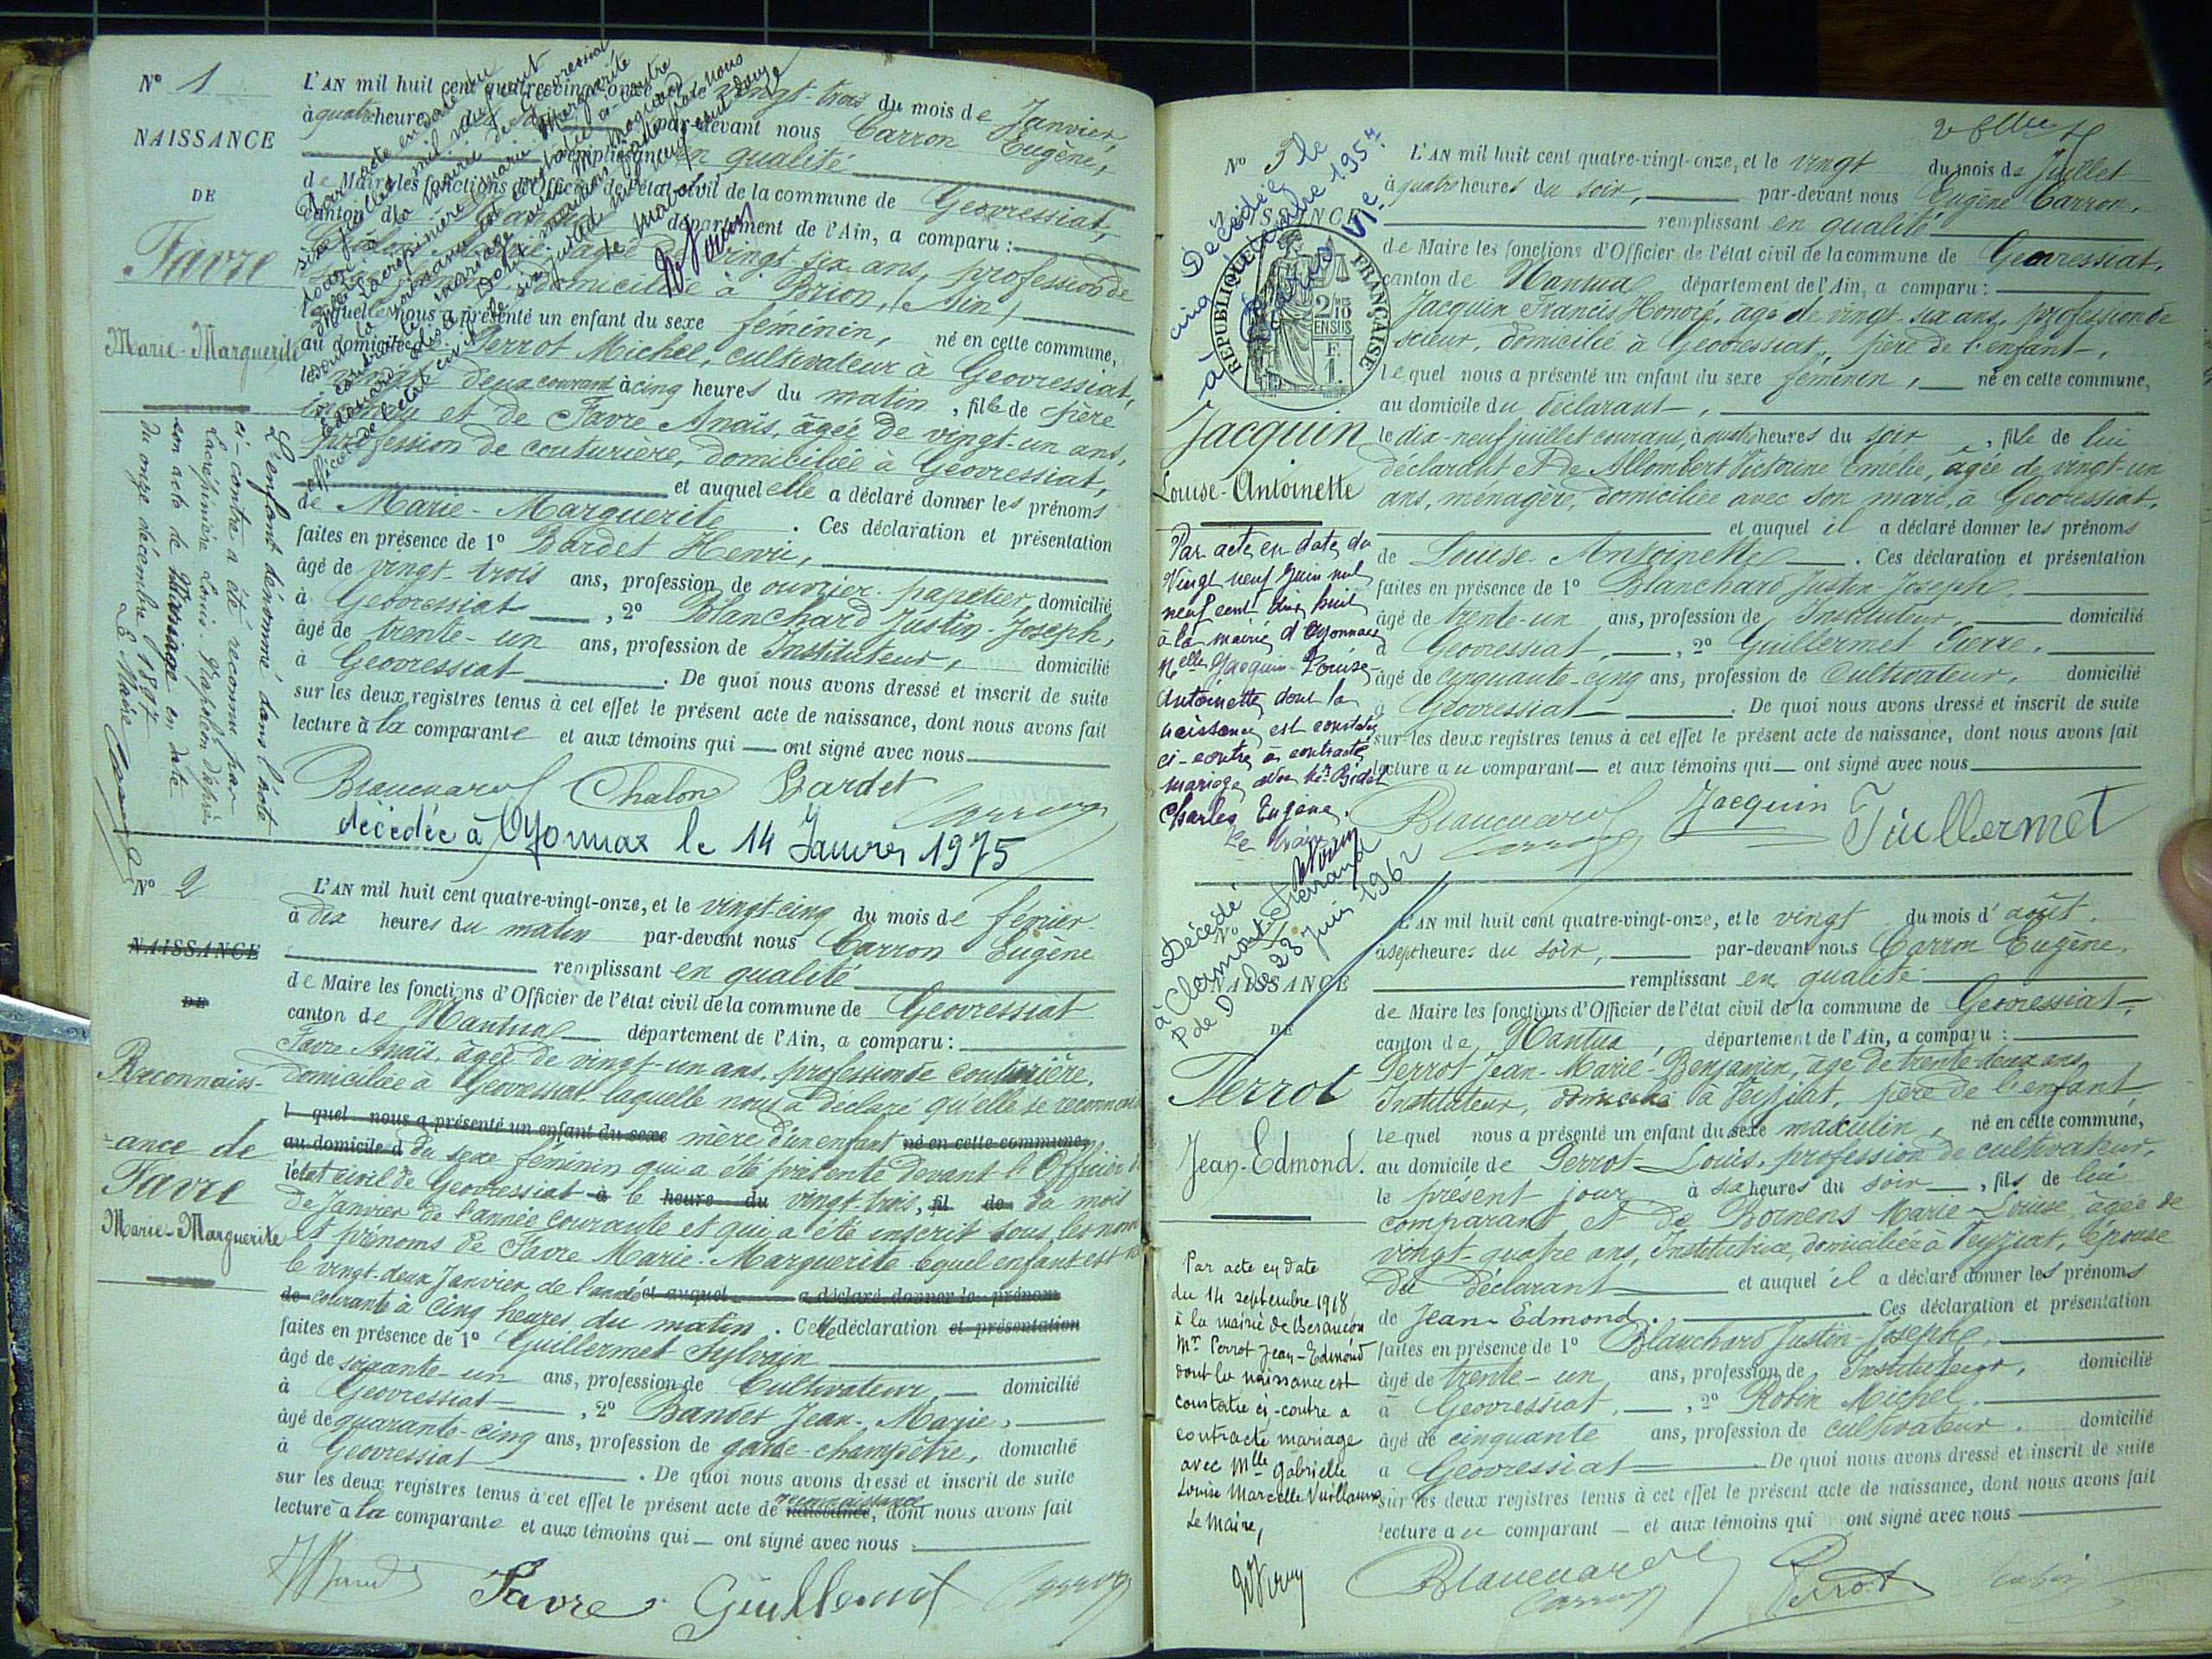 N° 1
NAISSANCE
DE
Favre
Marie-Marguerite
L'enfant dénommé dans l'acte
ci-contre a été reconnu par
Lacrépinière Louis Napoléon Désiré
son acte de Mariage en date
du onze décembre 1897
Le Maire
L'AN mil huit cent quatre-vingt-onze vingt-trois du mois de Janvier,
à quatre heures par-devant nous Carron Eugène,
remplissant en qualité
de Maire les fonctions d'Officier de l'état civil de la commune de Geovressiat,
canton de département de l'Ain, a comparu :
âgée de vingt-six ans, profession de
domiciliée à Brion, (Ain)
laquelle nous a présenté un enfant du sexe féminin, né en cette commune,
au domicile de Perrot Michel, cultivateur à Geovressiat,
le vingt-deux courant à cinq heures du matin, fille de père
inconnu et de Favre Anaïs, âgée de vingt-un ans,
profession de couturière, domiciliée à Geovressiat,
et auquel elle a déclaré donner les prénoms
de Marie-Marguerite. Ces déclaration et présentation
faites en présence de 1° Bardet Henri,
âgé de vingt-trois ans, profession de ouvrier papetier, domicilié
à Geovressiat, 2° Blanchard Justin-Joseph,
âgé de trente-un ans, profession de Instituteur, domicilié
à Geovressiat. De quoi nous avons dressé et inscrit de suite
sur les deux registres tenus à cet effet le présent acte de naissance, dont nous avons fait
lecture à la comparante et aux témoins qui ont signé avec nous
Blanchard Chalon Bardet Carron
décédée à Oyonnax le 14 Janvier 1975
N° 2
NAISSANCE
DE
Reconnaiss-
-ance de
Favre
Marie-Marguerite
L'AN mil huit cent quatre-vingt-onze, et le vingt-cinq du mois de février
à dix heures du matin par-devant nous Carron Eugène
remplissant en qualité
de Maire les fonctions d'Officier de l'état civil de la commune de Geovressiat
canton de Nantua département de l'Ain, a comparu :
Favre Anaïs, âgée de vingt-un ans, profession de couturière,
domiciliée à Geovressiat, laquelle nous a déclaré qu'elle se reconnait
l quel nous a présenté un enfant du sexe mère d'un enfant né en cette commune,
au domicile d du sexe féminin qui a été présenté devant l'Officier de
l'état civil de Geovressiat à le heure du vingt-trois, fil de du mois
de Janvier de l'année courante et qui a été inscrit sous les noms
et prénoms de Favre Marie-Marguerite lequel enfant est né
le vingt-deux Janvier de l'année et auquel a déclaré donner le prénom
de courante à cinq heures du matin. Cette déclaration et présentation
faites en présence de 1° Guillermet Sylvain
âgé de soixante-un ans, profession de Cultivateur, domicilié
à Geovressiat, 2° Bandet Jean-Marie,
âgé de quarante-cinq ans, profession de garde-champêtre, domicilié
à Geovressiat. De quoi nous avons dressé et inscrit de suite
sur les deux registres tenus à cet effet le présent acte de naissance reconnaissance, dont nous avons fait
lecture à la comparante et aux témoins qui ont signé avec nous
Favre Guillermet Carron
N° 3
NAISSANCE
Décédée le
cinq 195
à VIe
RÉPUBLIQUE FRANÇAISE
2/10 MES
EN SUS
F.
1.
Jacquin
Louise-Antoinette
Par acte en date du
Vingt neuf Juin mil
neuf cent dix huit
à la mairie d'Oyonnax
Melle Jacquin Louise-
Antoinette, dont la
naissance est constatée
ci-contre a contracté
mariage avec Mr Bidet
Charles Eugène.
Le Maire
L'AN mil huit cent quatre-vingt-onze, et le vingt du mois de Juillet
à quatre heures du soir, par-devant nous Eugène Carron,
remplissant en qualité
de Maire les fonctions d'Officier de l'état civil de la commune de Geovressiat,
canton de Nantua département de l'Ain, a comparu :
Jacquin Francis Honoré, âgé de vingt-six ans, profession de
scieur, domicilié à Geovressiat, père de l'enfant,
lequel nous a présenté un enfant du sexe féminin, né en cette commune,
au domicile du déclarant,
le dix-neuf juillet courant, à quatre heures du soir, fille de lui
déclarant et de Allombert Victorine Emélie, âgée de vingt-un
ans, ménagère, domiciliée avec son mari, à Geovressiat,
et auquel il a déclaré donner les prénoms
de Louise-Antoinette. Ces déclaration et présentation
faites en présence de 1° Blanchard Justin Joseph,
âgé de trente-un ans, profession de Instituteur, domicilié
à Geovressiat, 2° Guillermet Pierre,
âgé de cinquante-cinq ans, profession de Cultivateur, domicilié
à Geovressiat. De quoi nous avons dressé et inscrit de suite
sur les deux registres tenus à cet effet le présent acte de naissance, dont nous avons fait
lecture au comparant et aux témoins qui ont signé avec nous
Blanchard Carron Jacquin Guillermet
Décédé
à Clermont-Ferrand
P de D le 23 Juin 1962
N° 4
NAISSANCE
DE
Perrot
Jean-Edmond.
Par acte en date
du 14 septembre 1918
à la mairie de Besançon
Mr Perrot Jean-Edmond
dont la naissance est
constatée ci-contre a
contracté mariage
avec Mlle Gabrielle
Louise Marcelle Vuillaume
Le Maire,
L'AN mil huit cent quatre-vingt-onze, et le vingt du mois d'août,
à sept heures du soir, par-devant nous Carron Eugène,
remplissant en qualité
de Maire les fonctions d'Officier de l'état civil de la commune de Geovressiat,
canton de Nantua, département de l'Ain, a comparu :
Perrot Jean-Marie-Benjamin, âgé de trente-deux ans,
Instituteur, domicilié à Veyziat, père de l'enfant
lequel nous a présenté un enfant du sexe masculin, né en cette commune,
au domicile de Perrot Louis, profession de cultivateur,
le présent jour à six heures du soir, fils de lui
comparant et de Bornens Marie-Louise, âgée de
vingt-quatre ans, Institutrice, domiciliée à Veyziat, épouse
du déclarant et auquel il a déclaré donner les prénoms
de Jean-Edmond. Ces déclaration et présentation
faites en présence de 1° Blanchard Justin-Joseph,
âgé de trente-un ans, profession de Instituteur, domicilié
à Geovressiat, 2° Robin Michel,
âgé de cinquante ans, profession de cultivateur, domicilié
à Geovressiat De quoi nous avons dressé et inscrit de suite
sur les deux registres tenus à cet effet le présent acte de naissance, dont nous avons fait
lecture au comparant et aux témoins qui ont signé avec nous
Blanchard Carron Perrot Robin